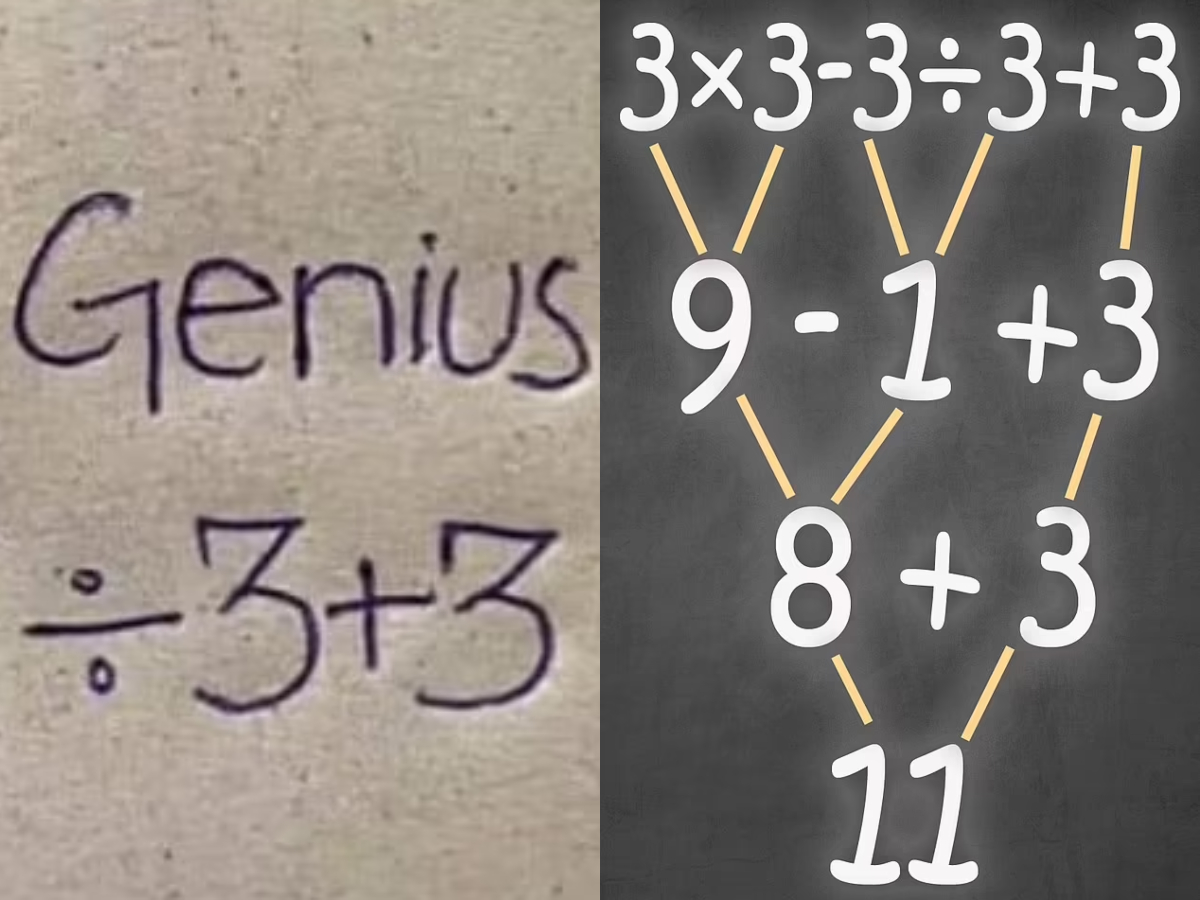 Genius
÷3+3
3×3-3÷3+3
9 - 1 + 3
8 + 3
11